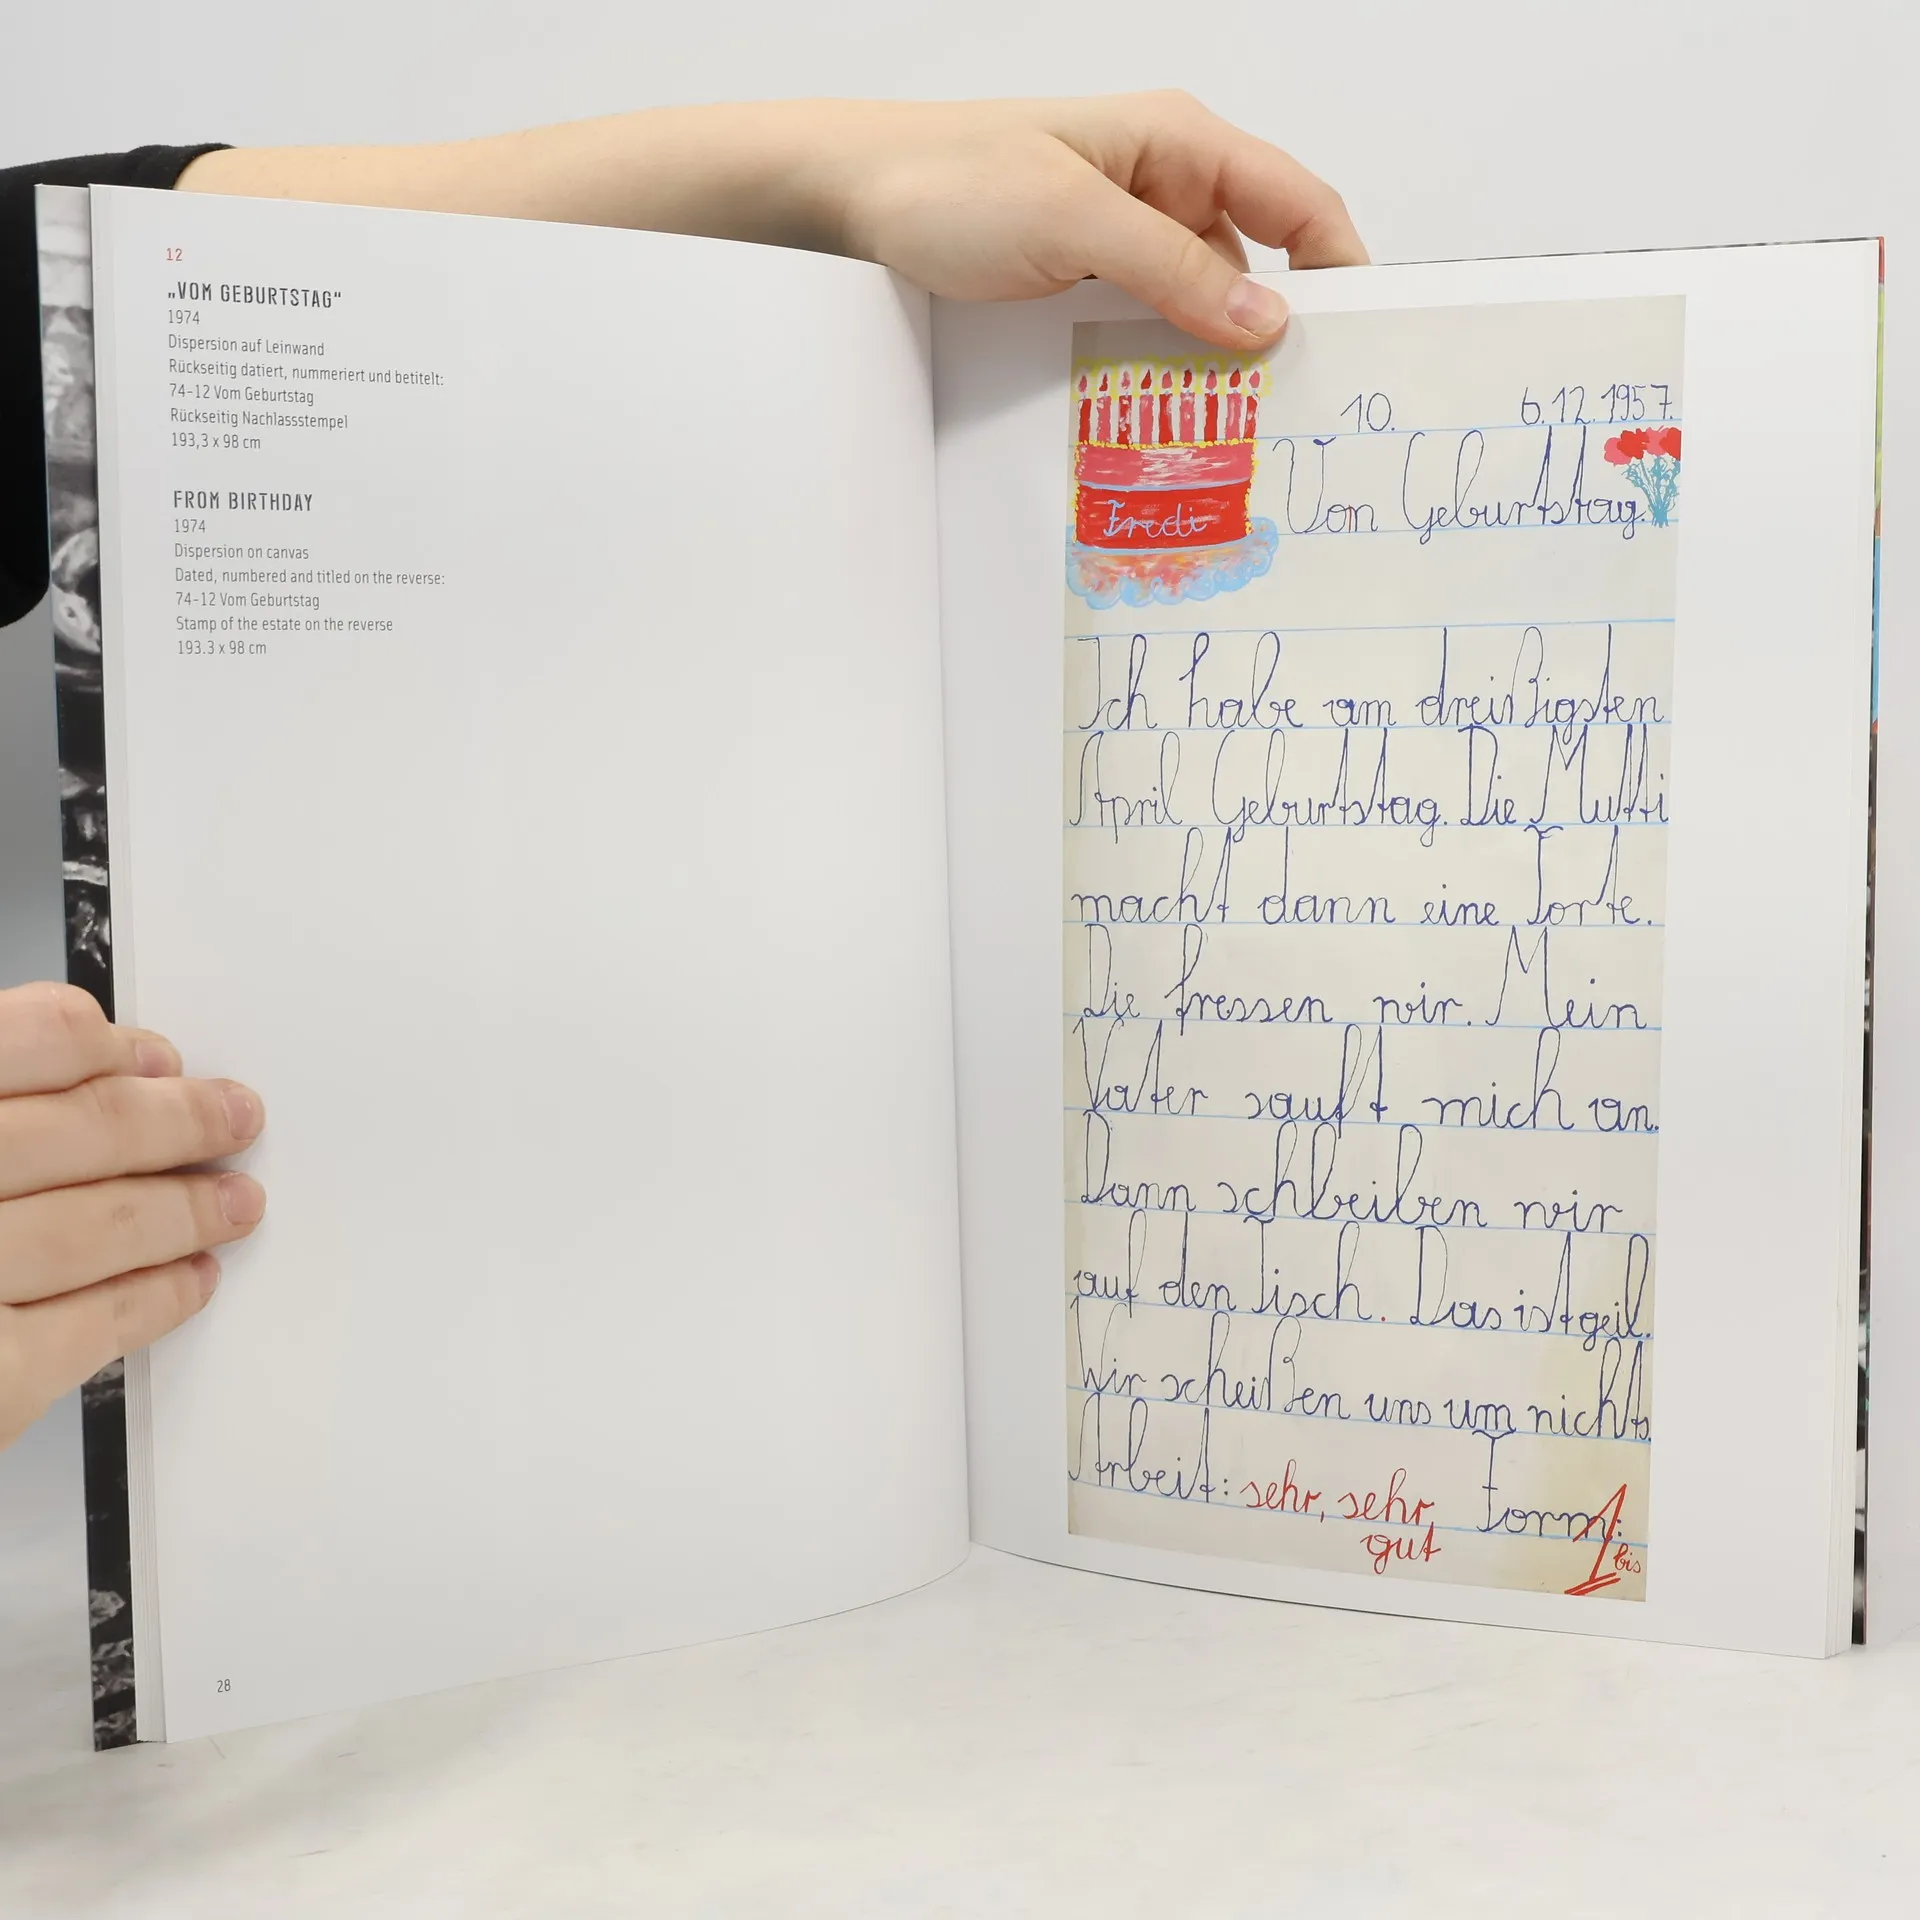 12
„VOM GEBURTSTAG“
1974
Dispersion auf Leinwand
Rückseitig datiert, nummeriert und betitelt:
74-12 Vom Geburtstag
Rückseitig Nachlassstempel
193,3 x 98 cm
FROM BIRTHDAY
1974
Dispersion on canvas
Dated, numbered and titled on the reverse:
74-12 Vom Geburtstag
Stamp of the estate on the reverse
193.3 x 98 cm
28
10. 6.12.1957.
Von Geburtstag.
Fredi
Ich habe am dreißigsten
April Geburtstag. Die Mutti
macht dann eine Torte.
Die fressen wir. Mein
Vater sauft mich an.
Dann schbeiben wir
auf den Tisch. Das ist geil.
Wir scheißen uns um nichts.
Arbeit: sehr, sehr, Form: 1
gut bis